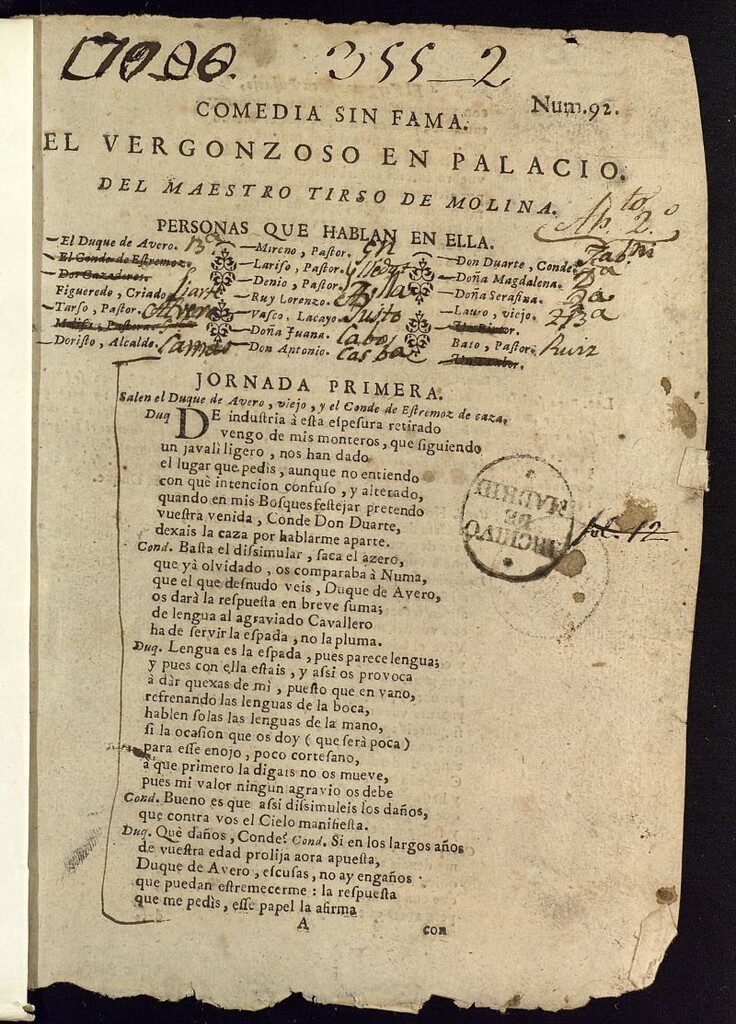 355_2
Num. 92.
COMEDIA SIN FAMA.
EL VERGONZOSO EN PALACIO.
DEL MAESTRO TIRSO DE MOLINA.
Ap.to 2.o
PERSONAS QUE HABLAN EN ELLA.
El Duque de Avero. 13a
El Conde de Estremoz.
Dos Cazadores.
Figueredo, Criado.
Tarso, Pastor.
Melisa, Pastora.
Doristo, Alcalde.
Mireno, Pastor.
Lariso, Pastor.
Denio, Pastor.
Ruy Lorenzo.
Vasco, Lacayo. Justo
Doña Juana.
Don Antonio.
Don Duarte, Conde.
Doña Magdalena.
Doña Serafina.
Lauro, viejo.
Un Pintor.
Bato, Pastor. Ruiz
JORNADA PRIMERA.
Salen el Duque de Avero, viejo, y el Conde de Estremoz de caza.
Duq DE industria à esta espesura retirado
vengo de mis monteros, que siguiendo
un javalì ligero, nos han dado
el lugar que pedis, aunque no entiendo
con què intencion confuso, y alterado,
quando en mis Bosques festejar pretendo
vuestra venida, Conde Don Duarte,
dexais la caza por hablarme aparte.
Cond. Basta el dissimular, saca el azero,
que yà olvidado, os comparaba à Numa,
que el que desnudo veis, Duque de Avero,
os darà la respuesta en breve suma;
de lengua al agraviado Cavallero
ha de servir la espada, no la pluma.
Duq. Lengua es la espada, pues parece lengua;
y pues con ella estais, y assi os provoca
à dàr quexas de mi, puesto que en vano,
refrenando las lenguas de la boca,
hablen solas las lenguas de la mano,
si la ocasion que os doy (que serà poca)
para esse enojo, poco cortesano,
à que primero la digais no os mueve,
pues mi valor ningun agravio os debe
Cond. Bueno es que assi dissimuleis los daños,
que contra vos el Cielo manifiesta.
Duq. Què daños, Conde? Cond. Si en los largos años
de vuestra edad prolija aora apuesta,
Duque de Avero, escusas, no ay engaños
que puedan estremecerme: la respuesta
que me pedis, esse papel la afirma
A
con
ARCHIVO
DE
MADRID
fol. 12